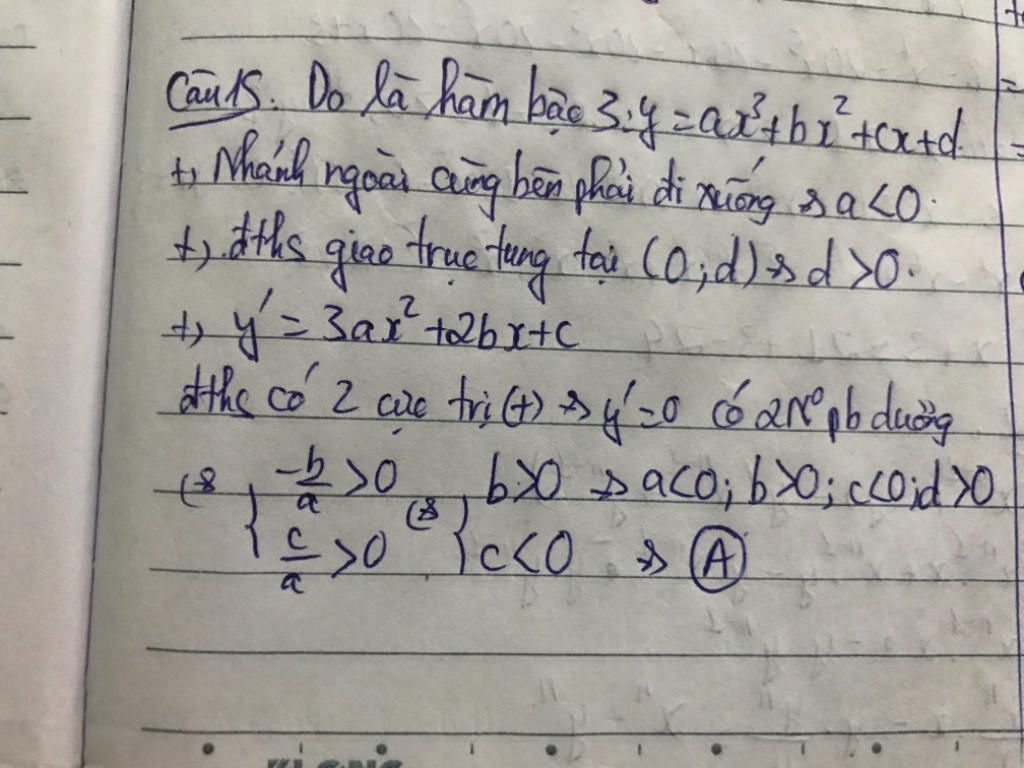 Câu 15. Do là hàm bậc 3: y = ax³ + bx² + cx + d
+, Nhánh ngoài cùng bên phải đi xuống => a < 0.
+, đths giao trục tung tại (0; d) => d > 0.
+, y' = 3ax² + 2bx + c
đths có 2 cực trị (+) => y' = 0 có 2 N° pb dương
<=> { -b/a > 0 <=> { b > 0 => a < 0; b > 0; c < 0; d > 0
c/a > 0 c < 0 => A